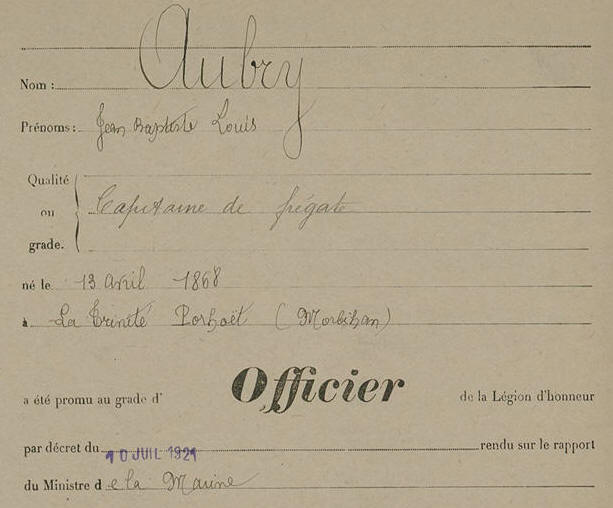 Nom : Aubry
Prénoms : Jean Baptiste Louis
Qualité
ou Capitaine de frégate
grade.
né le 13 avril 1868
à La Trinité Porhoët (Morbihan)
a été promu au grade d' Officier de la Légion d'honneur
par décret du 10 JUIL 1921 rendu sur le rapport
du Ministre de la Marine